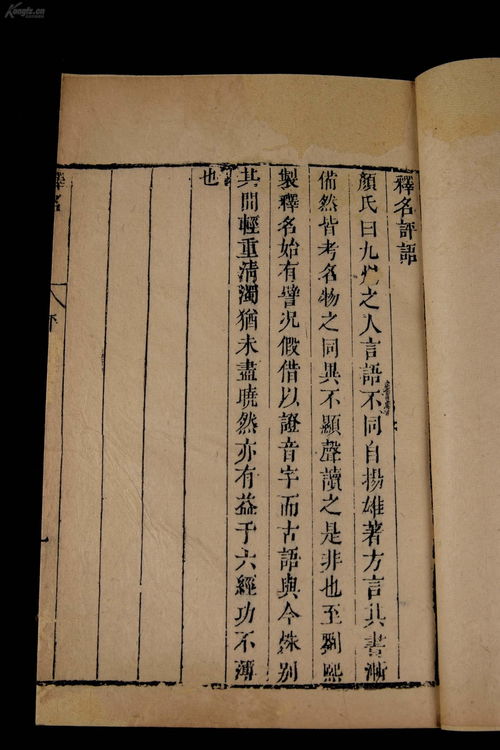 釋名評語
顏氏曰九州之人言語不同自揚雄著方言其書漸
備然皆考名物之同異不顯聲讀之是非也至劉熙
製釋名始有譬况假借以證音字而古語與今殊别
其間輕重清濁猶未盡曉然亦有益于六經功不薄
也
釋名
Kongfz.cn